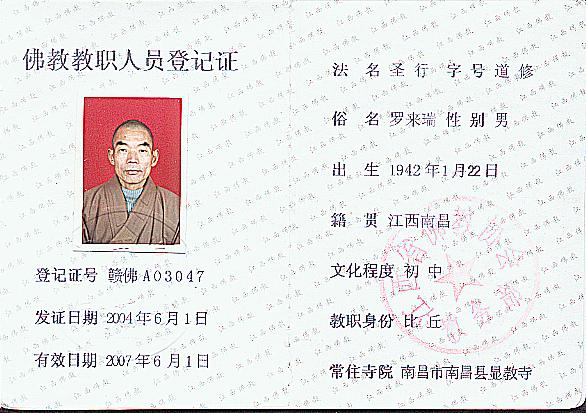 佛教教职人员登记证
登记证号 赣佛A03047
发证日期 2004年6月1日
有效日期 2007年6月1日
法名 圣行 字号 道修
俗名 罗来瑞 性别 男
出生 1942年1月22日
籍贯 江西南昌
文化程度 初中
教职身份 比丘
常住寺院 南昌市南昌县显教寺
江西省佛教协会
教务部
江西佛教